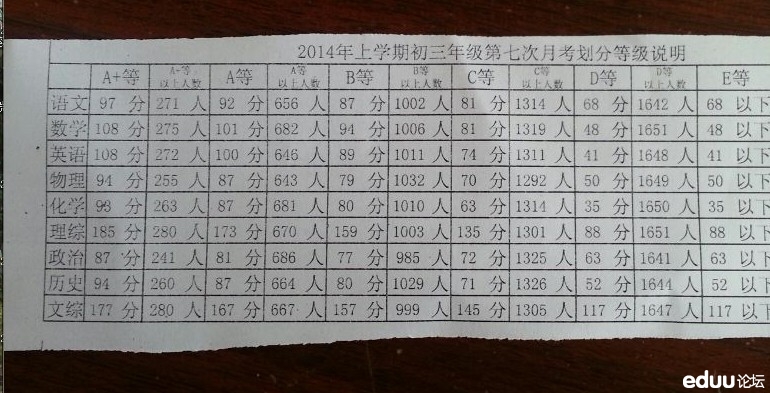 2014年上学期初三年级第七次月考划分等级说明
A+等 A+等以上人数 A等 A等以上人数 B等 B等以上人数 C等 C等以上人数 D等 D等以上人数 E等
语文 97 分 271 人 92 分 656 人 87 分 1002 人 81 分 1314 人 68 分 1642 人 68 以下
数学 108 分 275 人 101 分 682 人 94 分 1006 人 81 分 1319 人 48 分 1651 人 48 以下
英语 108 分 272 人 100 分 646 人 89 分 1011 人 74 分 1311 人 41 分 1648 人 41 以下
物理 94 分 255 人 87 分 643 人 79 分 1032 人 70 分 1292 人 50 分 1649 人 50 以下
化学 93 分 263 人 87 分 681 人 80 分 1010 人 63 分 1314 人 35 分 1650 人 35 以下
理综 185 分 280 人 173 分 670 人 159 分 1003 人 135 分 1301 人 88 分 1651 人 88 以下
政治 87 分 241 人 81 分 686 人 77 分 985 人 72 分 1325 人 63 分 1641 人 63 以下
历史 94 分 260 人 87 分 664 人 80 分 1029 人 71 分 1326 人 52 分 1644 人 52 以下
文综 177 分 280 人 167 分 667 人 157 分 999 人 145 分 1305 人 117 分 1647 人 117 以下
eduu论坛